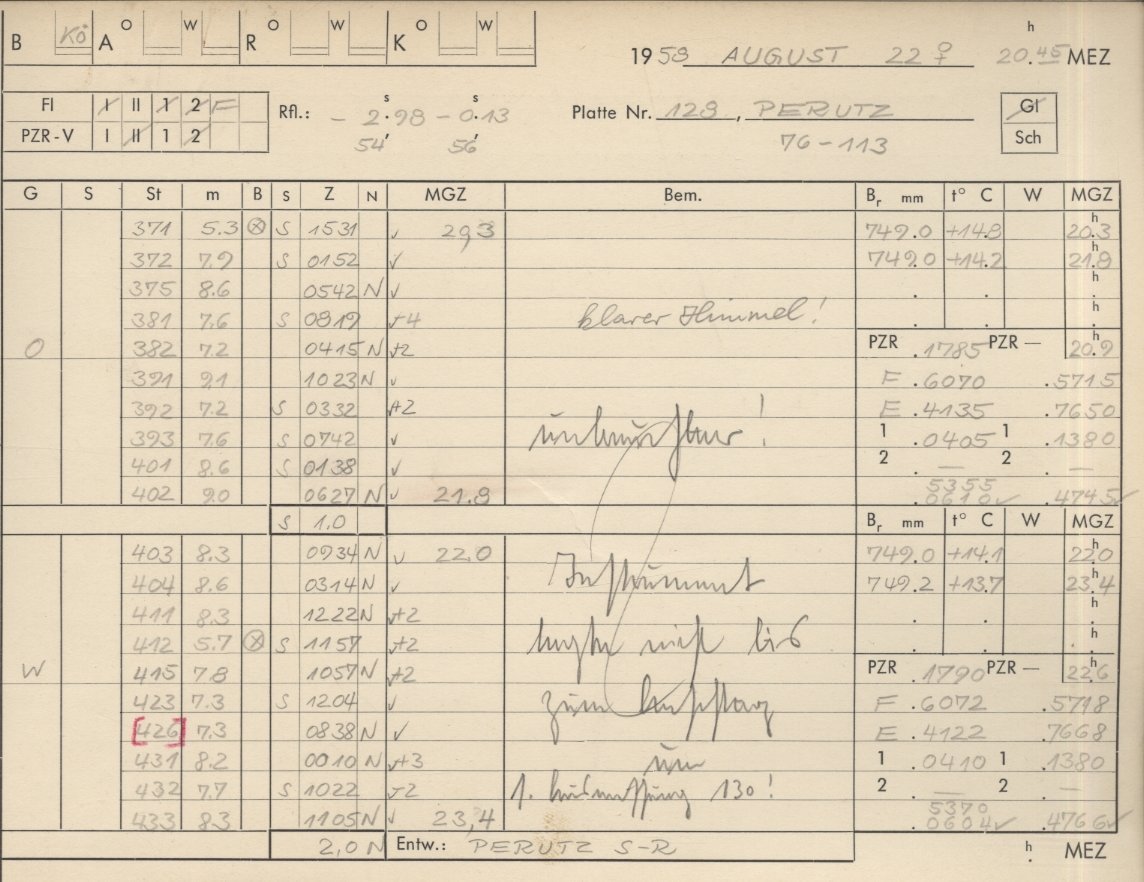 B Kö A O W R O W K O W
1958 AUGUST 22 ♀ 20.45 h MEZ
FI I II 1 2 F
PZR-V I II 1 2
Rfl.: - 2.98 s - 0.13 s
54' 56'
Platte Nr. 128, PERUTZ
76-113
Gl
Sch
G S St m B S Z N MGZ Bem. Br mm t° C W MGZ
371 5.3 ⊗ S 1531 ✓ 20,3 749.0 +14.8 20.3 h
372 7.9 S 0152 ✓ 749.0 +14.2 21.8 h
375 8.6 0542 N ✓ . . . h
381 7.6 S 0819 ✓+4 klarer Himmel! . . . h
O 382 7.2 0415 N ✓+2 PZR .1785 PZR — 20.9 h
391 9.1 1023 N ✓ F .6070 .5715
392 7.2 S 0332 ✓+2 E .4135 .7650
393 7.6 S 0742 ✓ unbrauchbar! 1 .0405 1 .1380
401 8.6 S 0138 ✓ 2 . — 2 . —
402 9.0 0627 N ✓ 21.8 5355
.0610 ✓ .4745 ✓
S 1.0 Br mm t° C W MGZ
403 8.3 0934 N ✓ 22.0 749.0 +14.1 22.0 h
404 8.6 0314 N ✓ Instrument 749.2 +13.7 23.4 h
411 8.3 1222 N ✓+2 . . . h
412 5.7 ⊗ S 1157 ✓+2 nicht bis . . . h
W 415 7.8 1057 N ✓+2 PZR .1790 PZR — 22.6 h
423 7.3 S 1204 ✓ zum F .6072 .5718
[426] 7.3 0838 N ✓ E .4122 .7668
431 8.2 0010 N ✓+3 1 .0410 1 .1380
432 7.7 S 1022 ✓+2 1. 130! 2 . — 2 . —
433 8.3 1105 N ✓ 23,4 5370
.0604 ✓ .4766 ✓
2,0 N Entw.: PERUTZ S-R h . MEZ